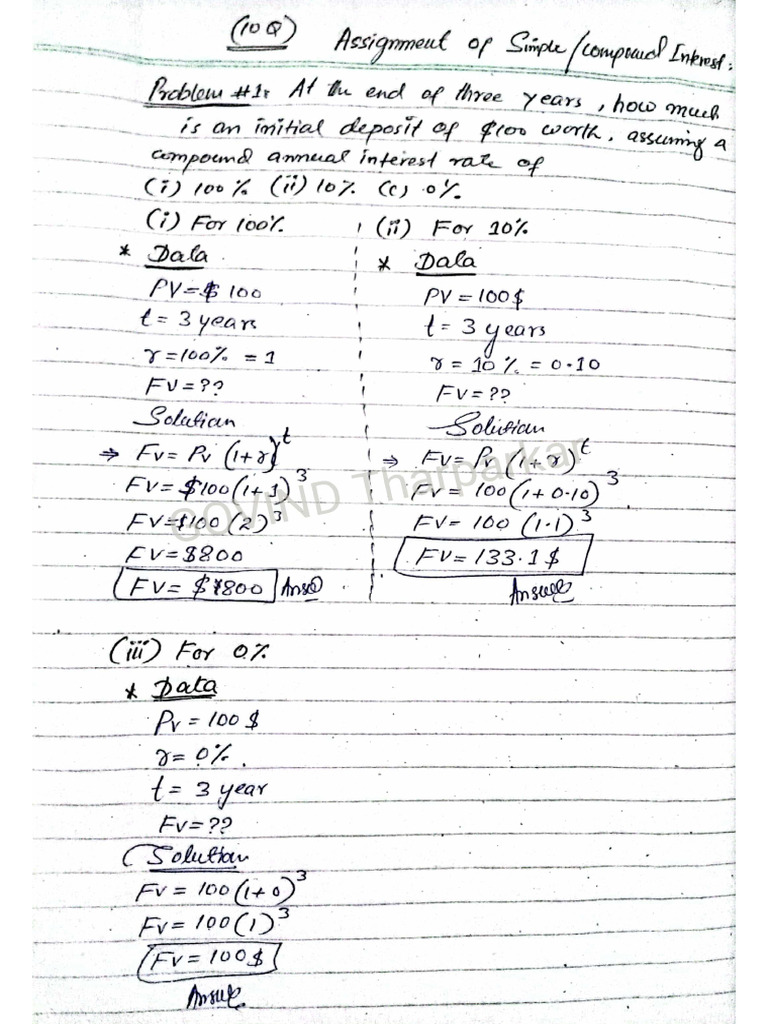 (10 Q) Assignment of Simple/compound Interest:
Problem #1: At the end of three years, how much
is an initial deposit of $100 worth, assuming a
compound annual interest rate of
(i) 100% (ii) 10% (c) 0%.
(i) For 100%.
* Data
PV = $ 100
t = 3 years
r = 100% = 1
FV = ??
Solution
⇒ FV = PV (1+r)^t
FV = $100 (1+1)^3
FV = $100 (2)^3
FV = $800
FV = $800 Ans
(ii) For 10%
* Data
PV = 100$
t = 3 years
r = 10% = 0.10
FV = ??
Solution
⇒ FV = PV (1+r)^t
FV = 100 (1+0.10)^3
FV = 100 (1.1)^3
FV = 133.1 $
Answer
GOVIND Tharparkar
(iii) For 0%
* Data
PV = 100 $
r = 0%.
t = 3 year
FV = ??
Solution
FV = 100 (1+0)^3
FV = 100 (1)^3
FV = 100$
Answer